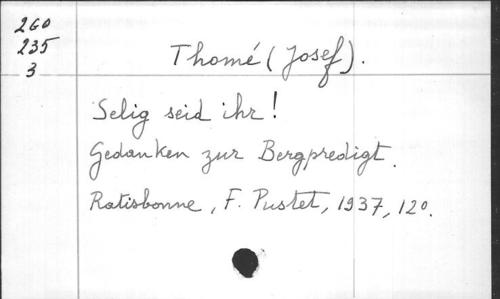 260
235
3
Thomé (Josef).
Selig seid ihr!
Gedanken zur Bergpredigt.
Ratisbonne, F. Pustet, 1937, 12°.